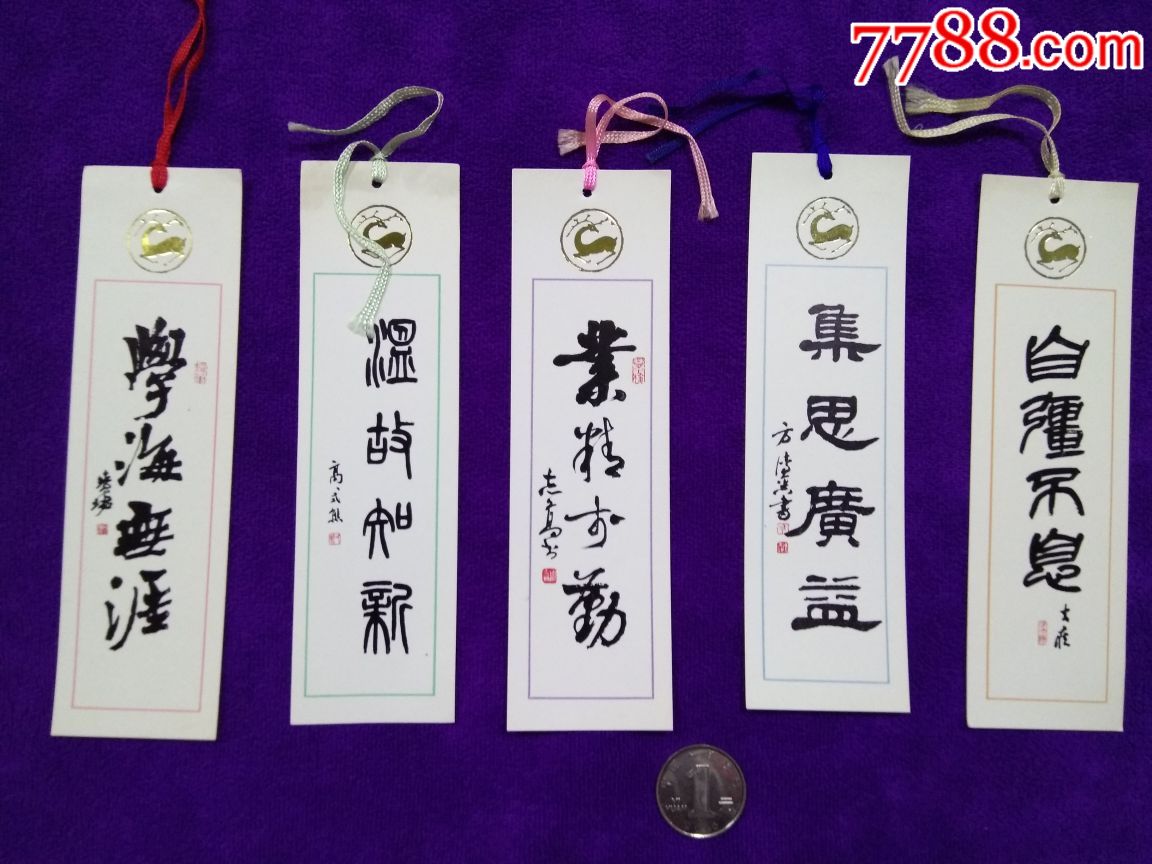 7788.com
學海無涯
溫故知新
高式熊
業精於勤
集思廣益
方傳鑫書
自彊不息
1
YI YUAN